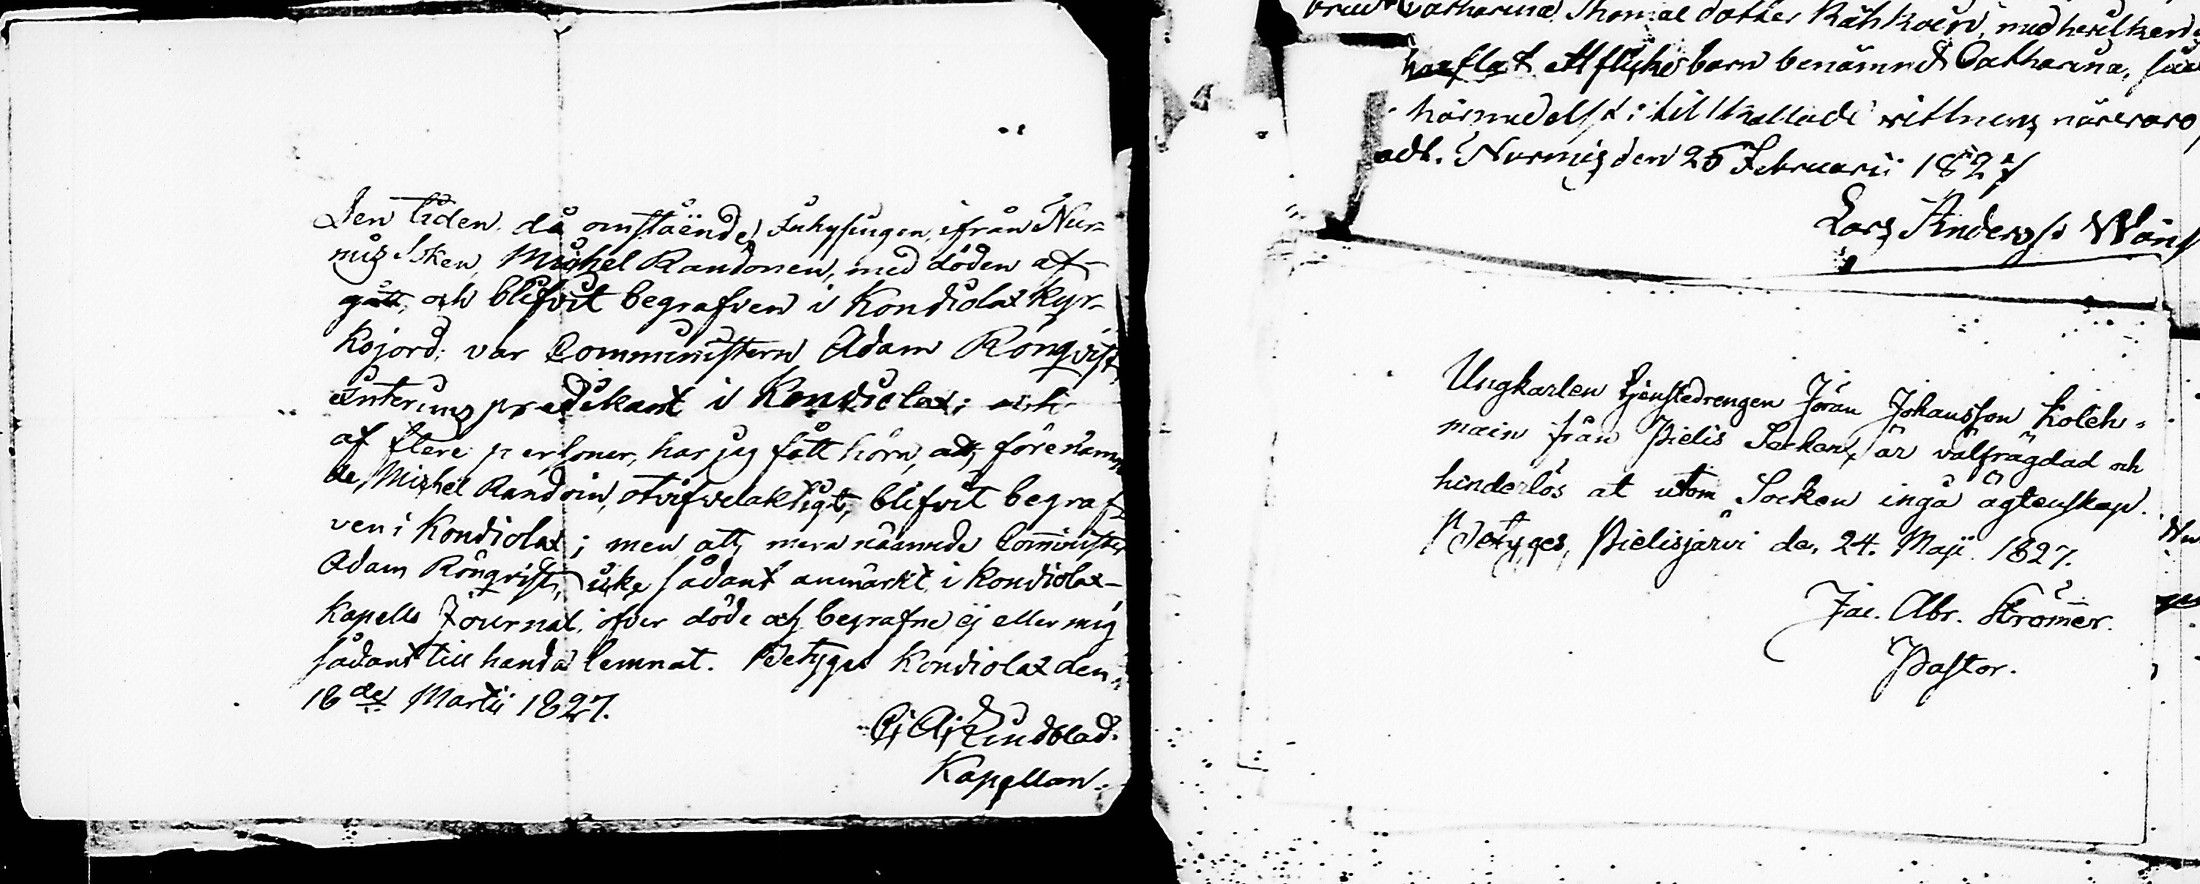 Den tiden då omstäende Inhysingen ifrån Nur-
mis Soken, Michel Randonen, med döden af-
gått, och blifvit begrafven i Kondiolax Kyr-
kojord; var Comministern Adam Rönqvist,
interims predikant i Kondiolax; och
af flere personer, har jag fått höra, att förenämn
de Michel Randoin, otvifvelaktigt, blifvit begraf-
ven i Kondiolax; men att mera nämnde Comminister
Adam Rönqvist, icke sådant anmärkt i Kondiolax-
Kapells Journal öfver döde och begrafne, ej eller mig
sådant till handa lemnat. Betyges Kondiolax den
18de Martii 1827.
Lindblad.
Kapellan.
brud Catharina Thomae dotter Kähköin, med hvilken
haflat ett flicke barn benämnd Catharina, så
härmedelst i tillkallade wittnens närvaro
Nurmis den 25 Februarii 1827
Lars Anders
Ungkarlen tjenstedrengen Jöran Johansson Koleh-
main från Pielis Socken, är välfrägdad och
hinderlös at utom Socken ingå ägtenskap.
Betyges, Pielisjärvi de, 24. Maji 1827.
Jac. Abr. Strömer.
Pastor.